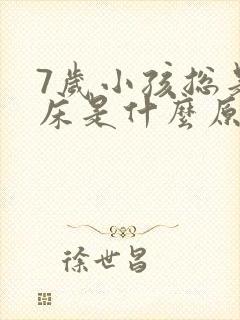 7歲小孩总
床是什麼原
徐世昌